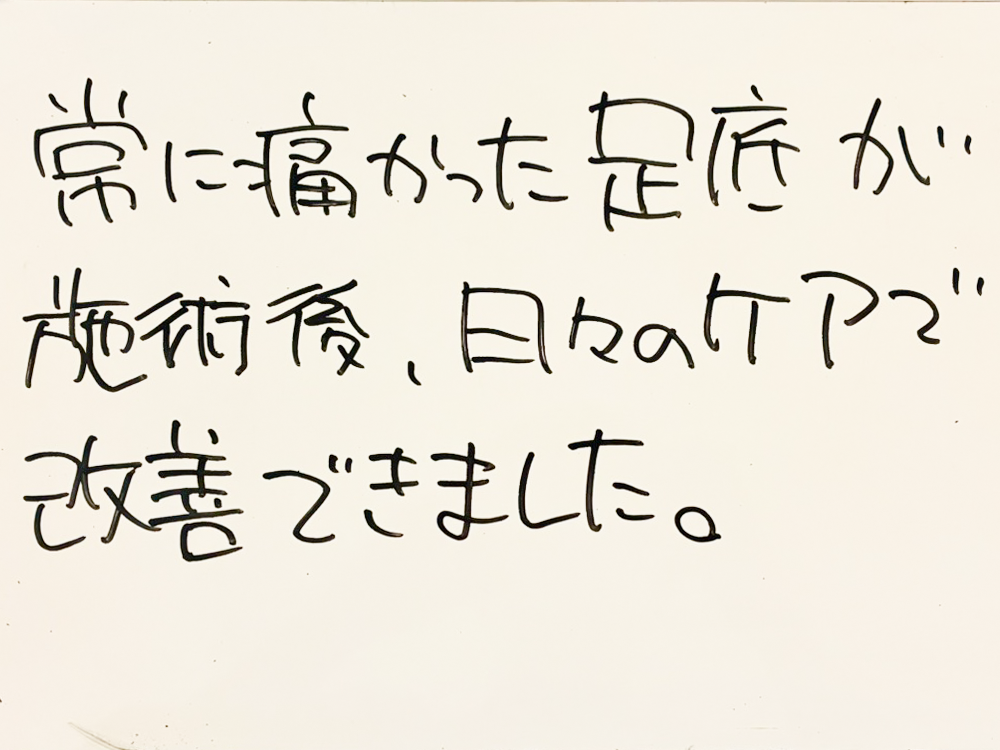 常に痛かった足底が
施術後、日々のケアで
改善できました。